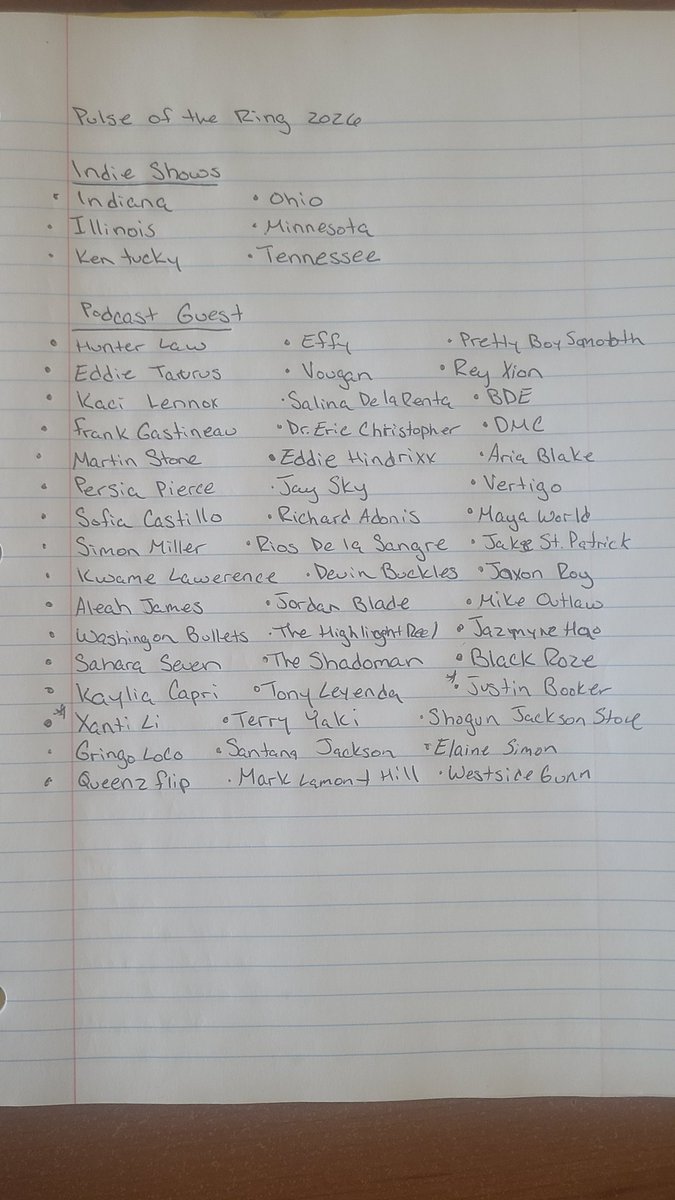 Pulse of the Ring 2026
Indie Shows
• Indiana • Ohio
• Illinois • Minnesota
• Kentucky • Tennessee
Podcast Guest
• Hunter Law • Effy • Pretty Boy Smooth
• Eddie Taurus • Vougan • Rey Xion
• Kaci Lennox • Salina De la Renta • BDE
• Frank Gastineau • Dr. Eric Christopher • DMC
• Martin Stone • Eddie Hindrixx • Aria Blake
• Persia Pierce • Jay Sky • Vertigo
• Sofia Castillo • Richard Adonis • Maya World
• Simon Miller • Rios De la Sangre • Jake St. Patrick
• Kwame Lawerence • Devin Buckles • Jaxon Roy
• Aleah James • Jordan Blade • Mike Outlaw
• Washingon Bullets • The Highlight Reel • Jazmyne Hao
• Sahara Seven • The Shadoman • Black Roze
• Kaylia Capri • Tony Leyenda *• Justin Booker
•* Xanti Li • Terry Yaki • Shogun Jackson Stone
• Gringo Loco • Santana Jackson • Elaine Simon
• Queenz flip • Mark Lamont Hill • Westside Gunn